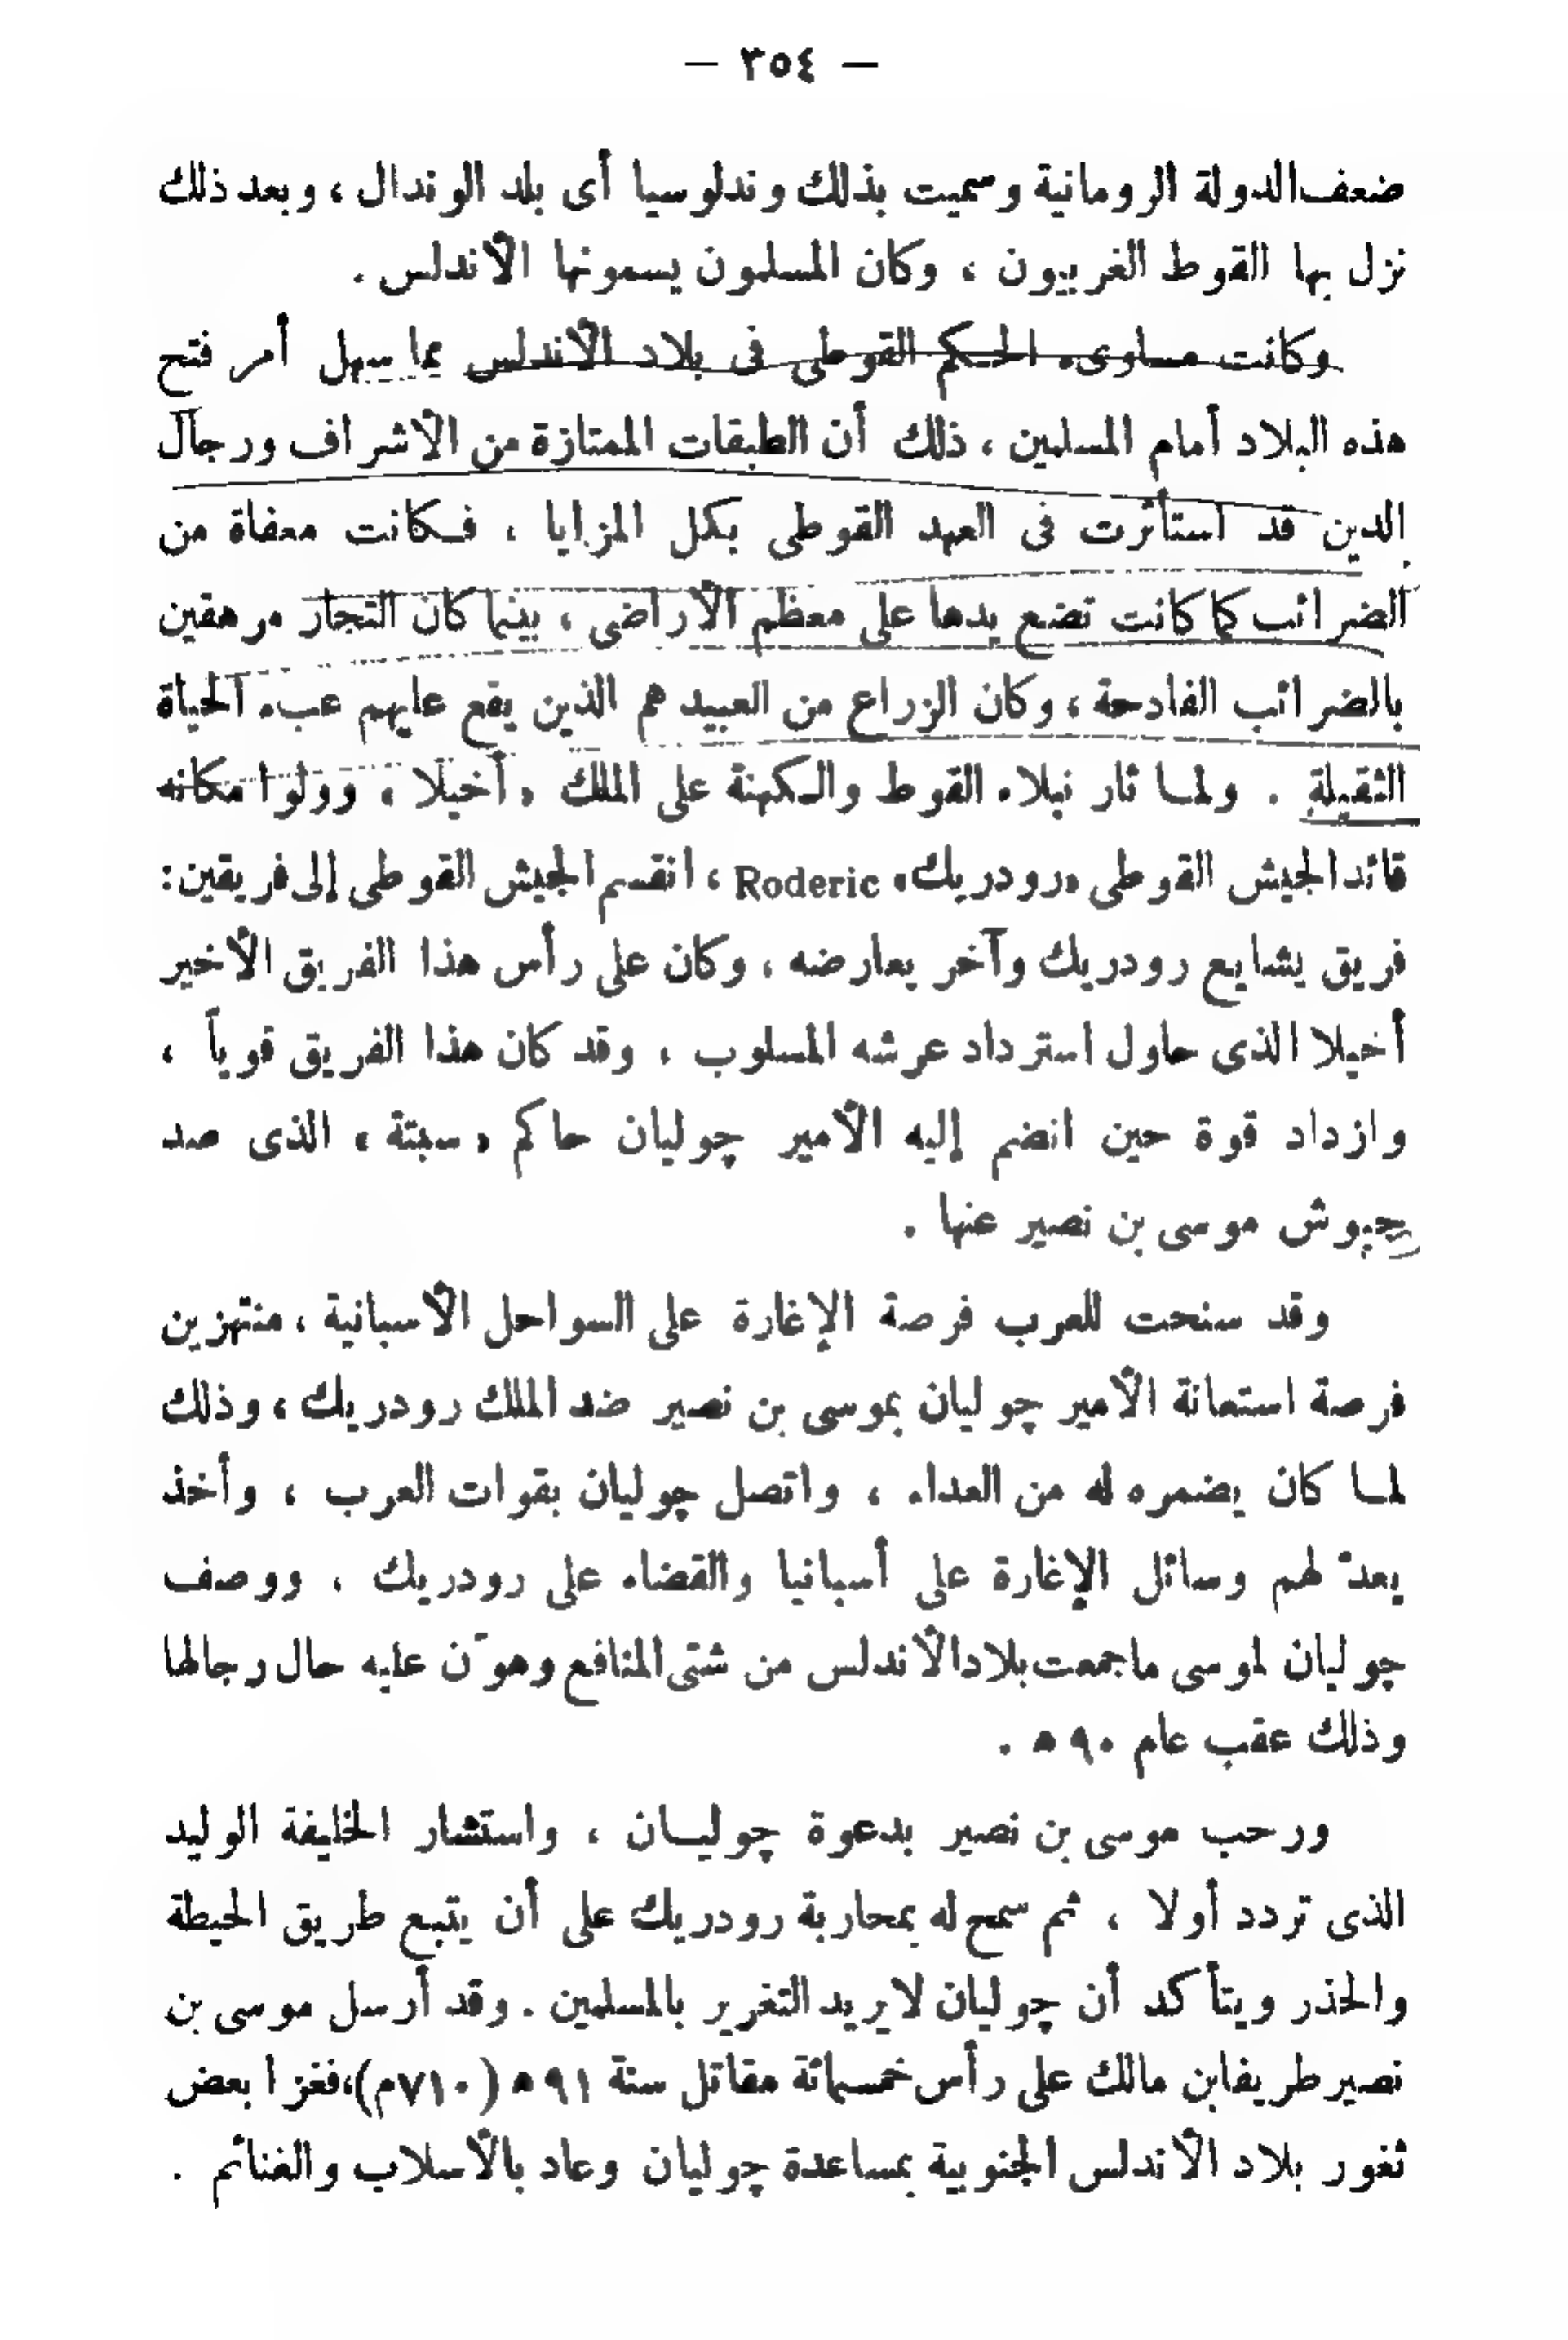 — ٣٥٤ —
ضعف الدولة الرومانية وسميت بذلك وندلوسيا أى بلد الوندال ، وبعد ذلك
نزل بها القوط الغربيون ، وكان المسلمون يسمونها الأندلس .
وكانت مساوىء الحكم القوطى فى بلاد الأندلس مما سهل أمر فتح
هذه البلاد أمام المسلمين ، ذلك أن الطبقات الممتازة من الأشراف ورجال
الدين قد استأثرت فى العهد القوطى بكل المزايا ، فكانت معفاة من
الضرائب كما كانت تضع يدها على معظم الأراضى ، بينما كان التجار مرهقين
بالضرائب الفادحة ، وكان الزراع من العبيد هم الذين يقع عليهم عبء الحياة
الثقيلة . ولما ثار نبلاء القوط والكهنة على الملك « أخيلا » وولوا مكانه
قائد الجيش القوطى «رودريك» Roderic ، انقسم الجيش القوطى إلى فريقين :
فريق يشايع رودريك وآخر يعارضه ، وكان على رأس هذا الفريق الأخير
أخيلا الذى حاول استرداد عرشه المسلوب ، وقد كان هذا الفريق قوياً ،
وازداد قوة حين انضم إليه الأمير چوليان حاكم « سبتة » الذى صد
جيوش موسى بن نصير عنها .
وقد سنحت للعرب فرصة الإغارة على السواحل الأسبانية ، منتهزين
فرصة استعانة الأمير چوليان بموسى بن نصير ضد الملك رودريك ، وذلك
لما كان يضمره له من العداء ، واتصل چوليان بقوات العرب ، وأخذ
يعدّ لهم وسائل الإغارة على أسبانيا والقضاء على رودريك ، ووصف
چوليان لموسى ماجمعت بلاد الأندلس من شتى المنافع وهوّن عليه حال رجالها
وذلك عقب عام ٩٠ ه .
ورحب موسى بن نصير بدعوة چوليان ، واستشار الخليفة الوليد
الذى تردد أولا ، ثم سمح له بمحاربة رودريك على أن يتبع طريق الحيطة
والحذر ويتأكد أن چوليان لايريد التغرير بالمسلمين . وقد أرسل موسى بن
نصير طريفا بن مالك على رأس خمسمائة مقاتل سنة ٩١ ه ( ٧١٠م) ، فغزا بعض
ثغور بلاد الأندلس الجنوبية بمساعدة چوليان وعاد بالأسلاب والغنائم .